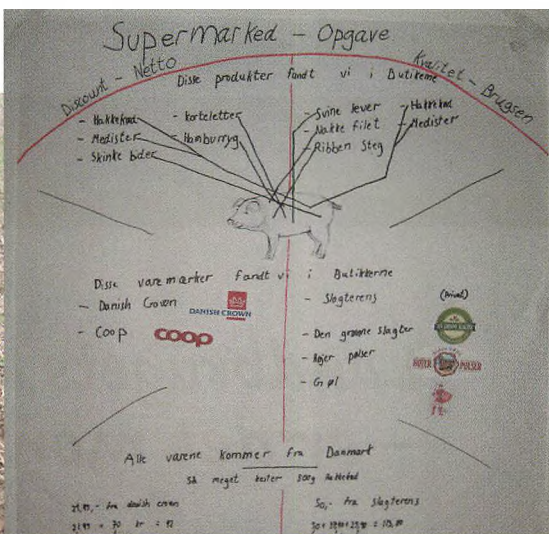 Supermarked - Opgave
Discount - Netto
Kvalitet - Brugsen
Disse produkter fandt vi i Butikkerne
- Hakkekød
- Medister
- Skinke bider
- Koteletter
- Hamburryg
- Svine lever
- Nakke filet
- Ribben Steg
- Hakkekød
- Medister
Disse varemærker fandt vi i Butikkerne
- Danish Crown
DANISH CROWN
- Coop
coop
- Slagterens
(Privat)
- Den grønne slagter
- Højer pølser
HØJER PØLSER
- Gøl
Alle varene kommer fra Danmark
Så meget koster 500g hakkekød
fra danish crown
50,- fra slagterens